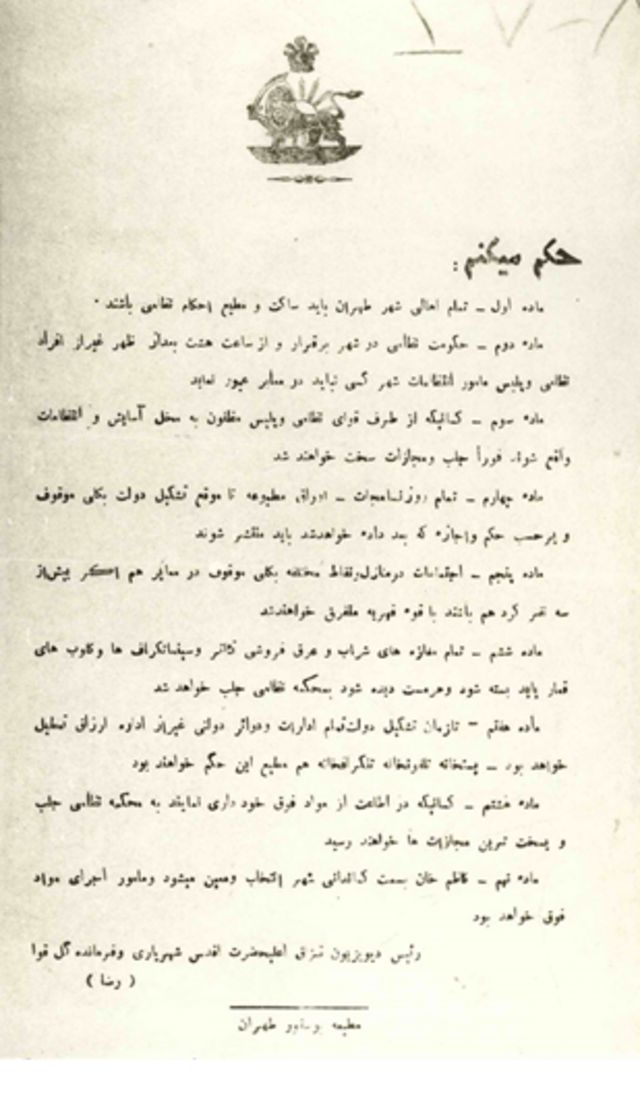 حکم میکنم :
ماده اول ــ تمام اهالی شهر طهران باید ساکت و مطیع احکام نظامی باشند ٠
ماده دوم ــ حکومت نظامی در شهر برقرار و از ساعت هشت بعداز ظهر غیراز افراد
نظامی وپلیس مامور انتظامات شهر کسی نباید در معابر عبور نماید
ماده سوم ــ کسانیکه از طرف قوای نظامی وپلیس مظنون به مخل آسایش و انتظامات
واقع شوند فوراً جلب ومجازات سخت خواهند شد
ماده چهارم ــ تمام روزنامجات ــ اوراق مطبوعه تا موقع تشکیل دولت بکلی موقوف
و برحسب حکم واجازه که بعد داده خواهدشد باید منتشر شوند
ماده پنجم ــ اجتماعات درمنازل ونقاط مختلفه بکلی موقوف در معابر هم اگر بیش از
سه نفر گرد هم باشند با قوه قهریه متفرق خواهندشد
ماده ششم ــ تمام مغازه های شراب و عرق فروشی تئاتر وسینماتگراف ها وکلوب های
قمار باید بسته شود وهرمست دیده شود بمحکمه نظامی جلب خواهد شد
ماده هفتم ــ تازمان تشکیل دولت تمام ادارات ودوائر دولتی غیراز اداره ارزاق تعطیل
خواهد بود ــ پستخانه تلفونخانه تلگرافخانه هم مطیع این حکم خواهند بود
ماده هشتم ــ کسانیکه در اطاعت از مواد فوق خود داری نمایند به محکمه نظامی جلب
و بسخت ترین مجازات ها خواهند رسید
ماده نهم ــ کاظم خان بسمت کماندانی شهر انتخاب ومعین میشود ومامور اجرای مواد
فوق خواهد بود
رئیس دیویزیون قزاق اعلیحضرت اقدس شهریاری وفرمانده کل قوا
( رضا )
مطبعه طهران